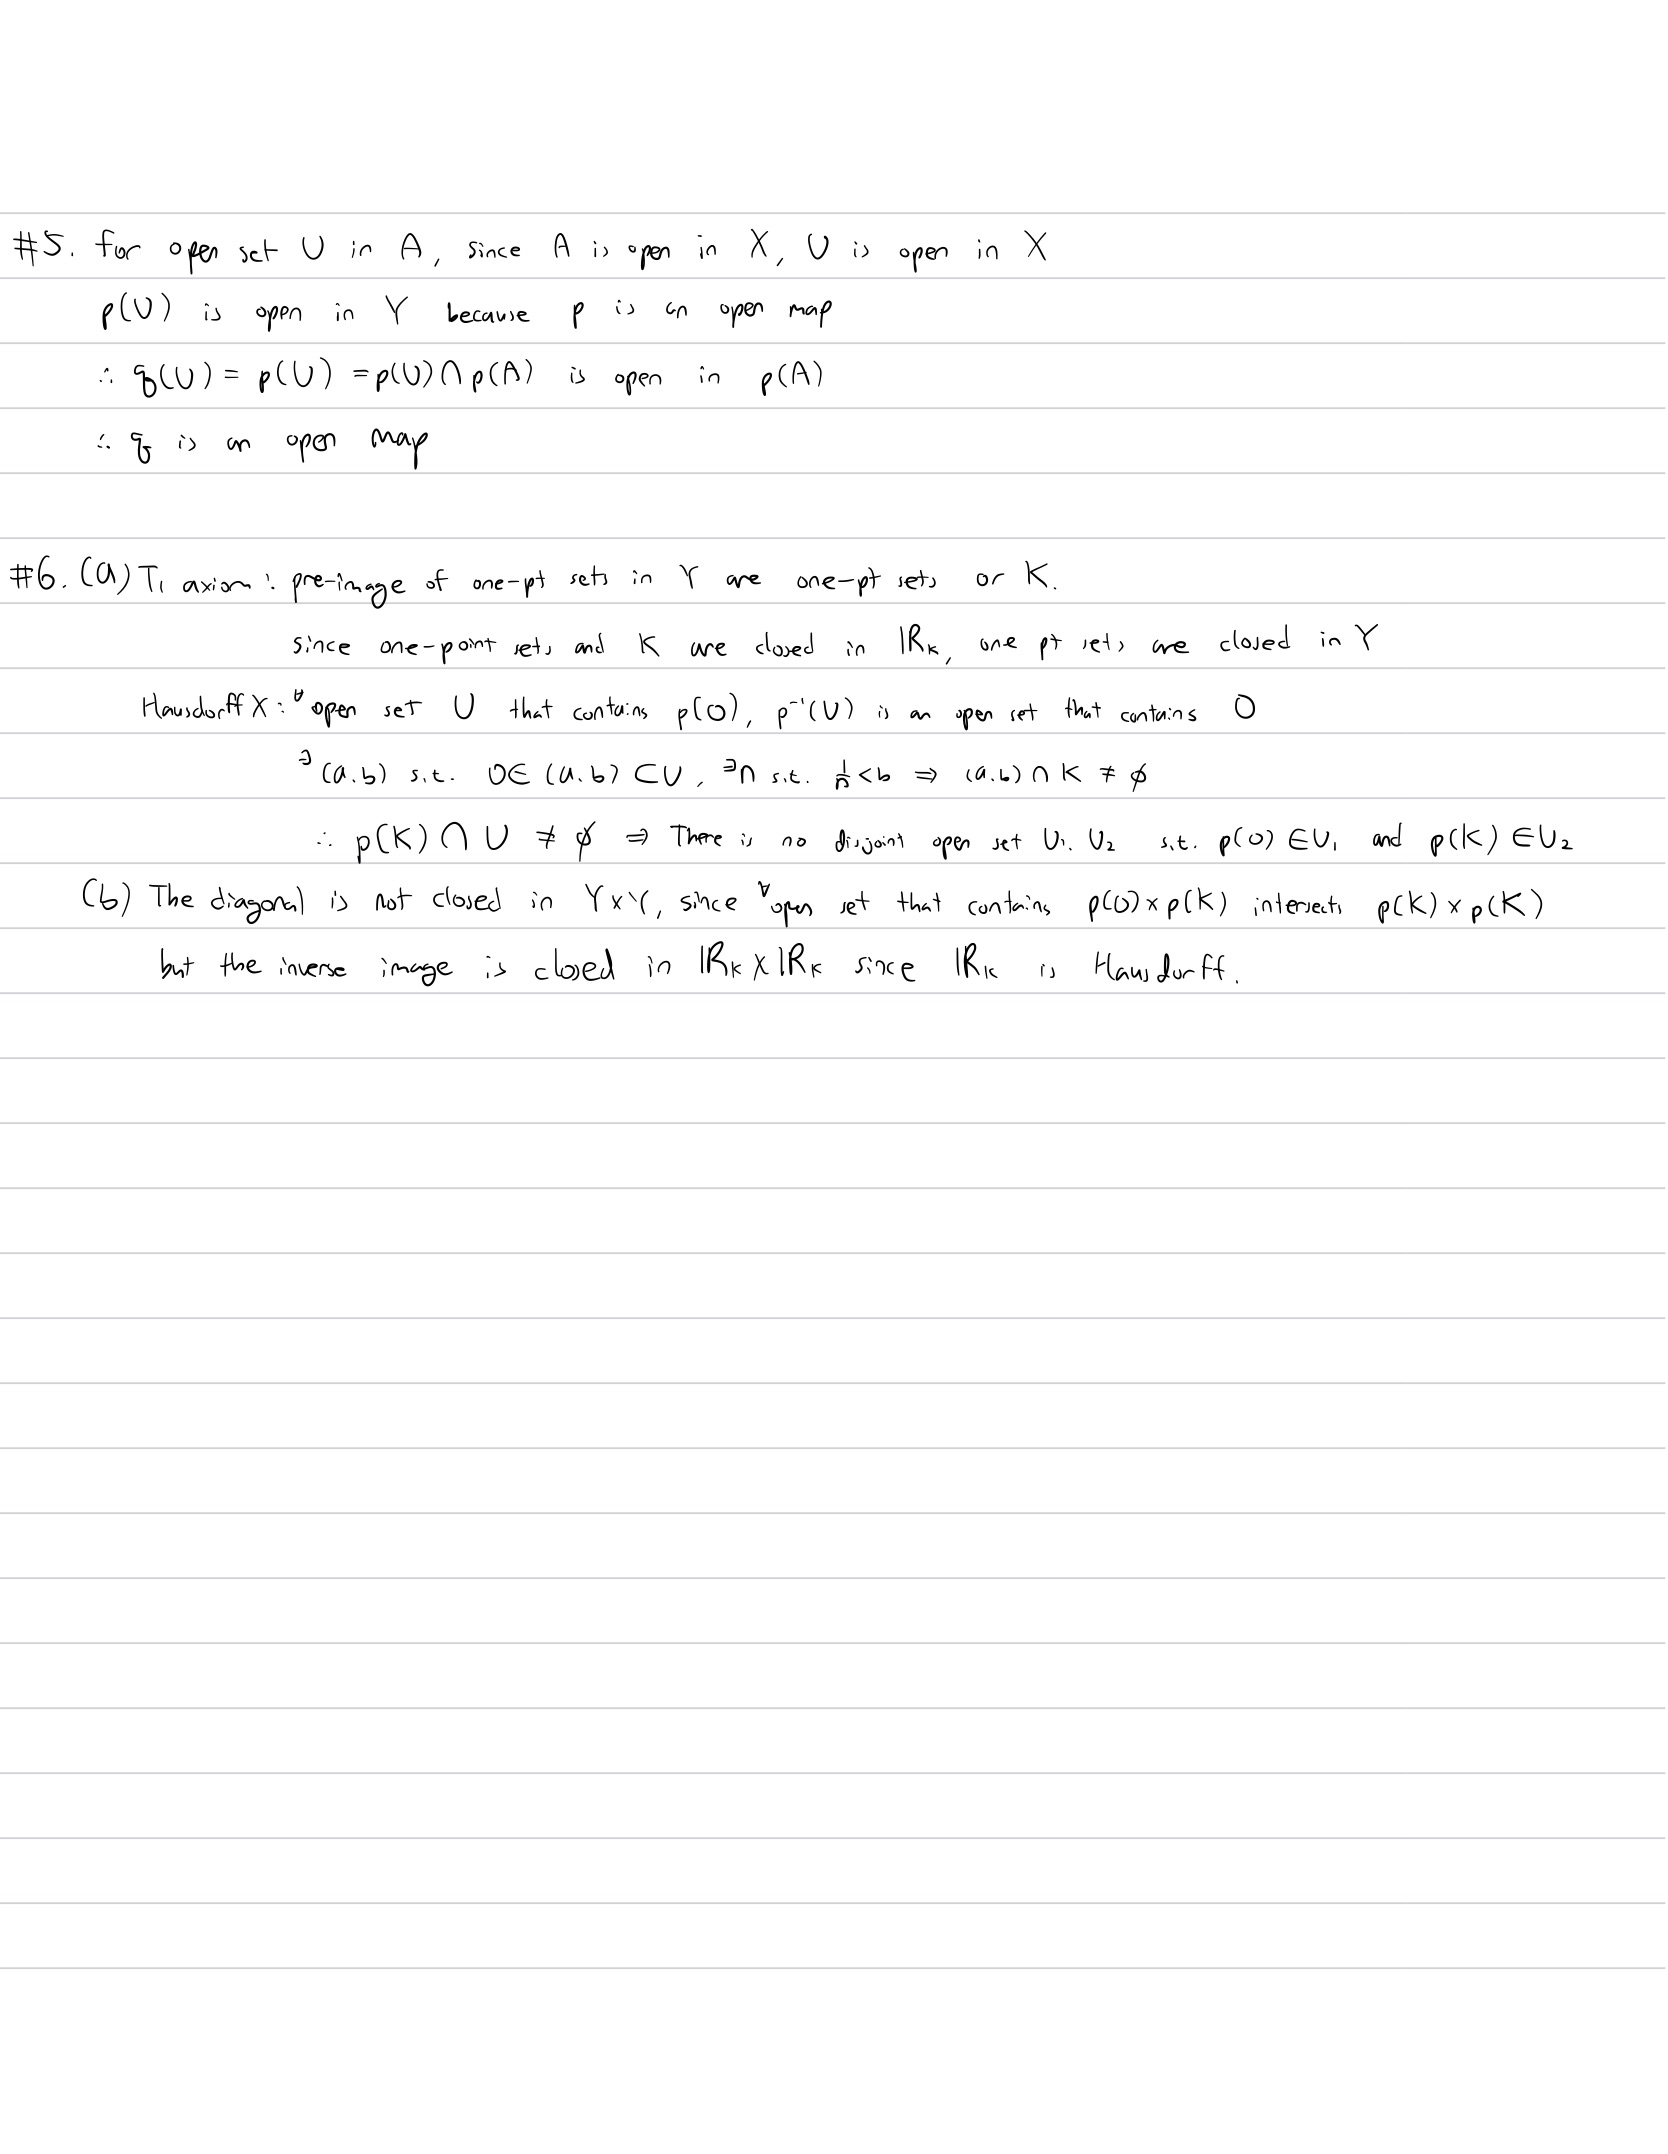 #5. for open set U in A, since A is open in X, U is open in X
p(U) is open in Y because p is an open map
∴ q(U) = p(U) = p(U)∩p(A) is open in p(A)
∴ q is an open map
#6. (a) T₁ axiom : pre-image of one-pt sets in Y are one-pt sets or K.
since one-point sets and K are closed in ℝₖ, one pt sets are closed in Y
Hausdorff X : ∀open set U that contains p(0), p⁻¹(U) is an open set that contains 0
∃(a.b) s.t. 0∈(a.b)⊂U, ∃n s.t. 1/n<b ⇒ (a.b)∩K ≠ ∅
∴ p(K)∩U ≠ ∅ ⇒ There is no disjoint open set U₁. U₂ s.t. p(0)∈U₁ and p(K)∈U₂
(b) The diagonal is not closed in Y×Y, since ∀open set that contains p(0)×p(K) intersects p(K)×p(K)
but the inverse image is closed in ℝₖ×ℝₖ since ℝₖ is Hausdorff.